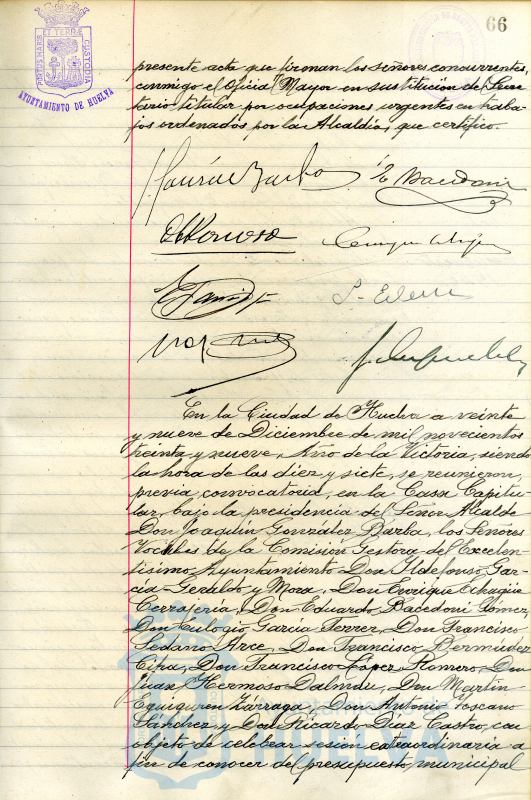 66
PORTUS MARIS ET TERRÆ CUSTODIA
AYUNTAMIENTO DE HUELVA
presente acta que firman los señores concurrentes,
conmigo el Oficial Mayor en sustitución del Secre
tario titular por ocupaciones urgentes en traba-
jos ordenados por la Alcaldía, que certifico.
En la Ciudad de Huelva a veinte
y nueve de Diciembre de mil novecientos
treinta y nueve, Año de la Victoria, siendo
la hora de las diez y siete, se reunieron,
previa convocatoria, en la Casa Capitu-
lar, bajo la presidencia del Señor Alcalde
Don Joaquín González Barba, los Señores
Vocales de la Comisión Gestora del Excelen-
tísimo Ayuntamiento Don Ildefonso Gar-
cía Geraldo y Mora, Don Enrique Echagüe
Cerrajería, Don Eduardo Bacedoni Gómez,
Don Eulogio García Ferrer, Don Francisco
Sedano Arce, Don Francisco Bermúdez
Don Francisco López Romero, Don
Juan Hermoso Dalmau, Don Martín
Eguiguren Lárraga, Don Antonio Toscano
Sánchez y Don Ricardo Díaz Castro, con
objeto de celebrar sesión extraordinaria a
fin de conocer del presupuesto municipal
HUELVA